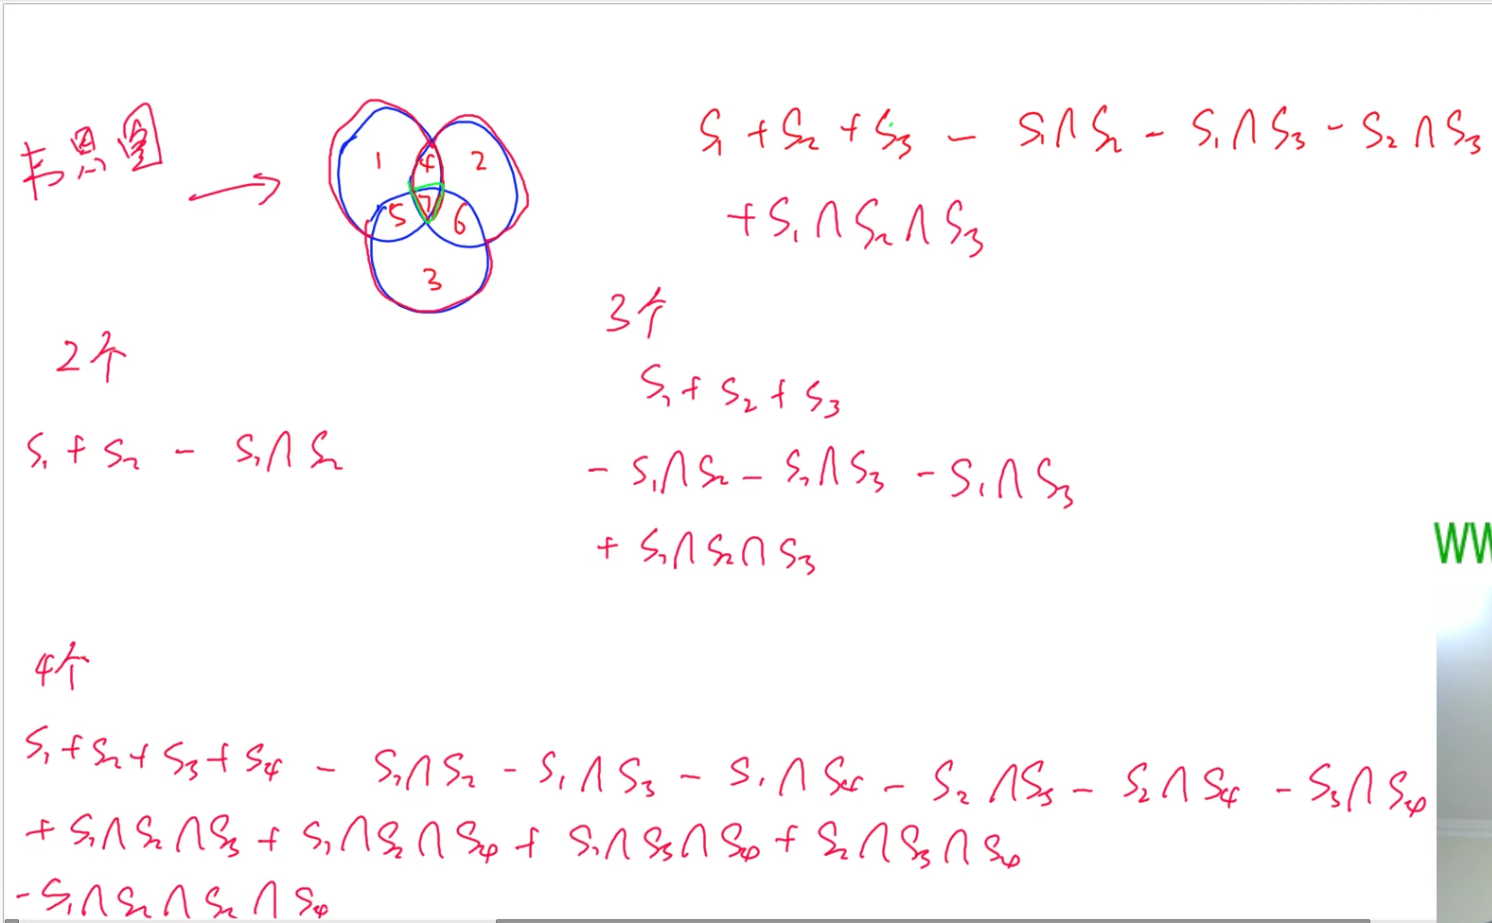 韦恩图
1 4 2
5 7 6
3
S₁ + S₂ + S₃ - S₁∩S₂ - S₁∩S₃ - S₂∩S₃
+ S₁∩S₂∩S₃
2个
S₁ + S₂ - S₁∩S₂
3个
S₁ + S₂ + S₃
- S₁∩S₂ - S₂∩S₃ - S₁∩S₃
+ S₁∩S₂∩S₃
WW
4个
S₁ + S₂ + S₃ + S₄ - S₁∩S₂ - S₁∩S₃ - S₁∩S₄ - S₂∩S₃ - S₂∩S₄ - S₃∩S₄
+ S₁∩S₂∩S₃ + S₁∩S₂∩S₄ + S₁∩S₃∩S₄ + S₂∩S₃∩S₄
- S₁∩S₂∩S₂∩S₄